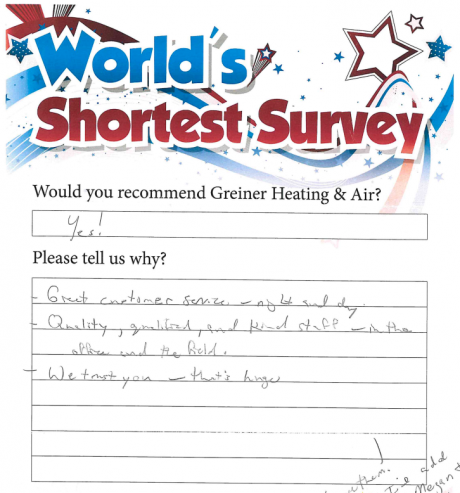 World's
Shortest Survey
Would you recommend Greiner Heating & Air?
Yes!
Please tell us why?
- Great customer service - night and day.
- Quality, qualified, and kind staff - in the
office and the field.
- We trust you - that's huge
them.
I'd add
Megan &